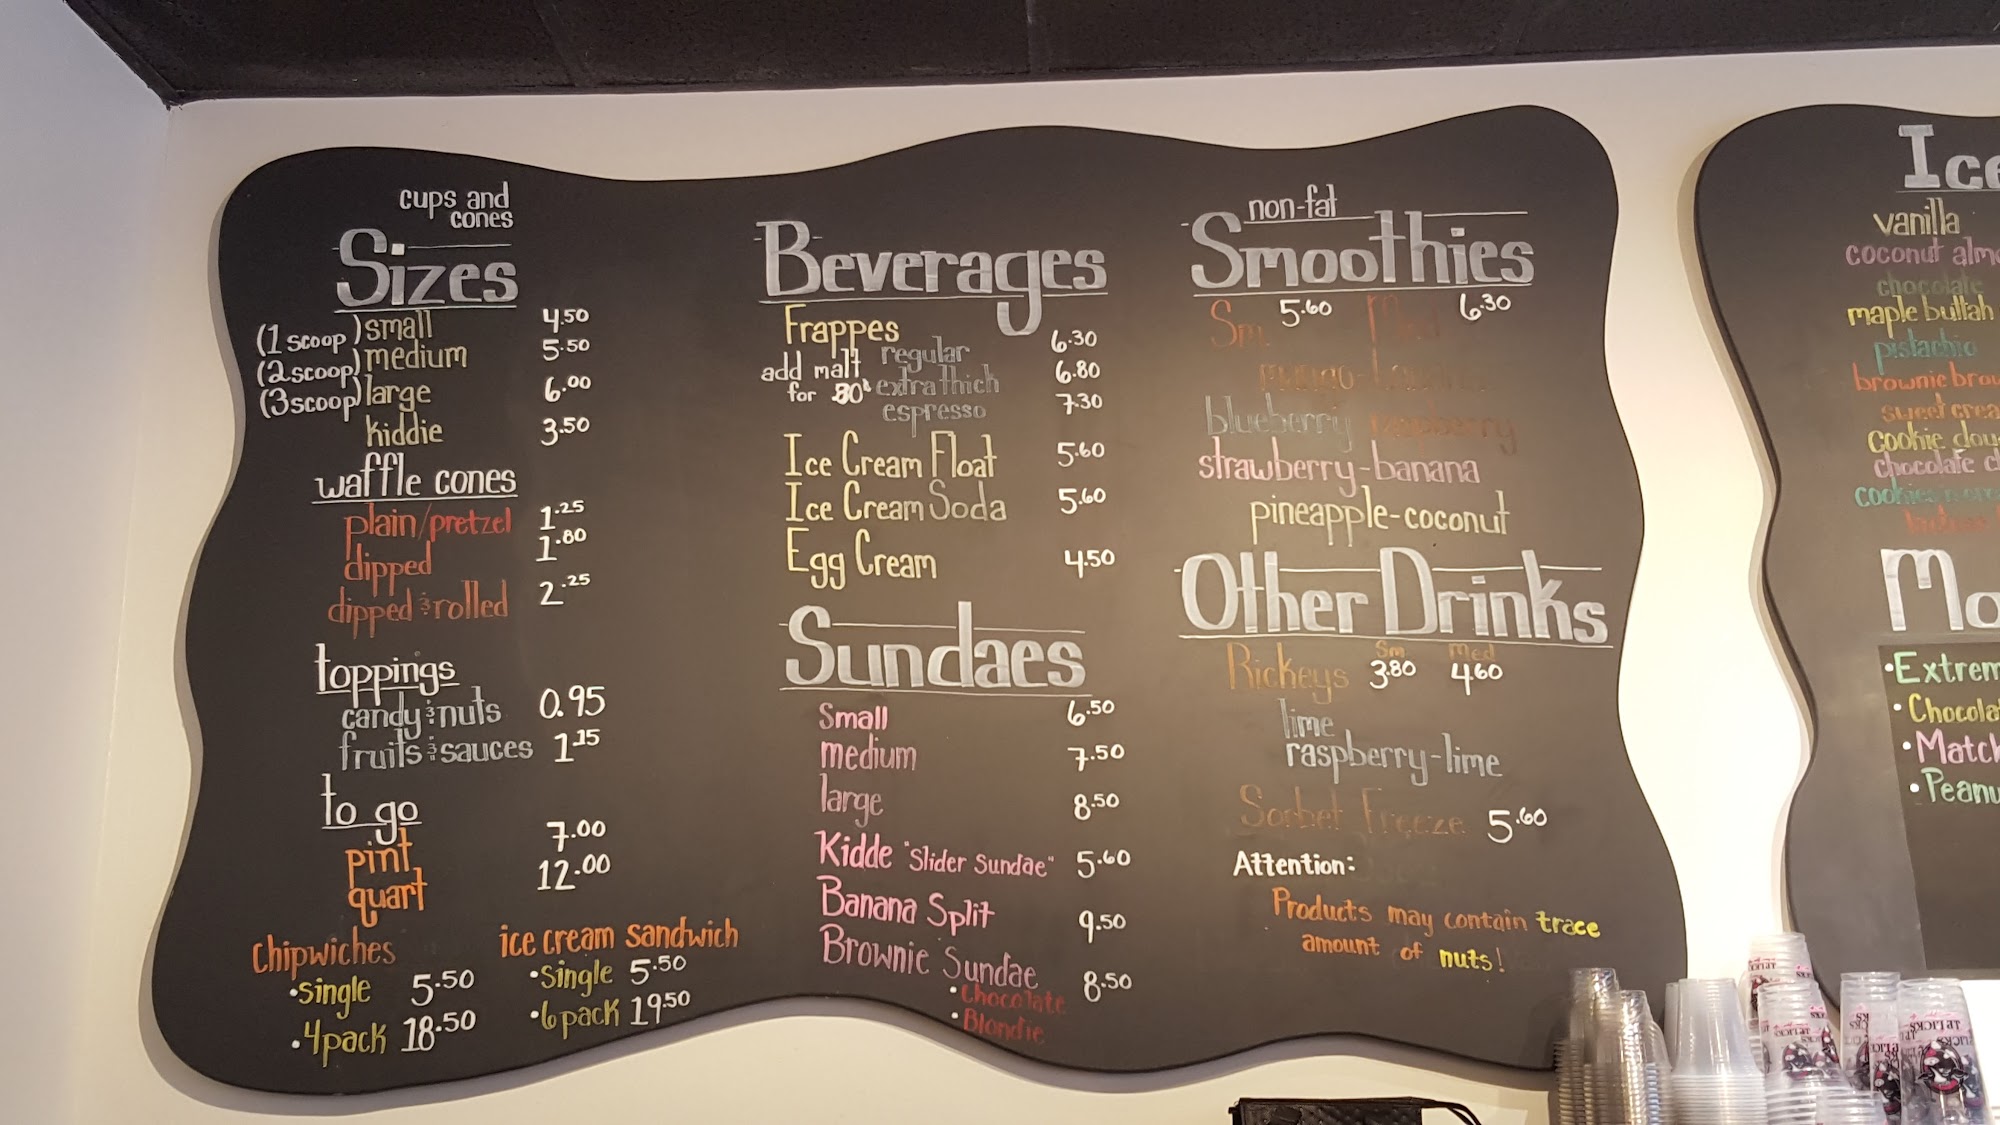 cups and
cones
Sizes
(1 scoop) small 4.50
(2 scoop) medium 5.50
(3 scoop) large 6.00
kiddie 3.50
waffle cones
plain/pretzel 1.25
dipped 1.80
dipped & rolled 2.25
toppings
candy & nuts 0.95
fruits & sauces 1.15
to go
pint 7.00
quart 12.00
chipwiches
•single 5.50
•4pack 18.50
ice cream sandwich
•single 5.50
•6pack 19.50
Beverages
Frappes
regular 6.30
add malt
for 80¢
extra thick 6.80
espresso 7.30
Ice Cream Float 5.60
Ice Cream Soda 5.60
Egg Cream 4.50
Sundaes
Small 6.50
medium 7.50
large 8.50
Kidde "Slider Sundae" 5.60
Banana Split 9.50
Brownie Sundae 8.50
•Chocolate
•Blondie
non-fat
Smoothies
Sm. 5.60 Med 6.30
blueberry raspberry
strawberry-banana
pineapple-coconut
Other Drinks
Sm Med
Rickeys 3.80 4.60
lime
raspberry-lime
Sorbet Freeze 5.60
Attention:
Products may contain trace
amount of nuts!
Ice
vanilla
coconut almo
chocolate
maple buttah
pistachio
brownie brow
sweet crea
cookie dou
chocolate c
Mo
•Extrem
•Chocola
•Match
•Peanu